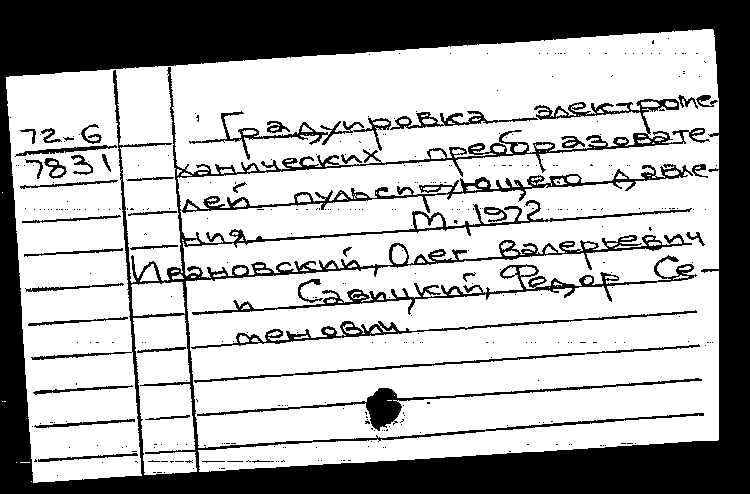 72-6
7831
Градуировка электроме-
ханических преобразовате-
лей пульсирующего давле-
ния. М., 1972
Ивановский, Олег Валерьевич
и Савицкий, Федор Се-
менович.